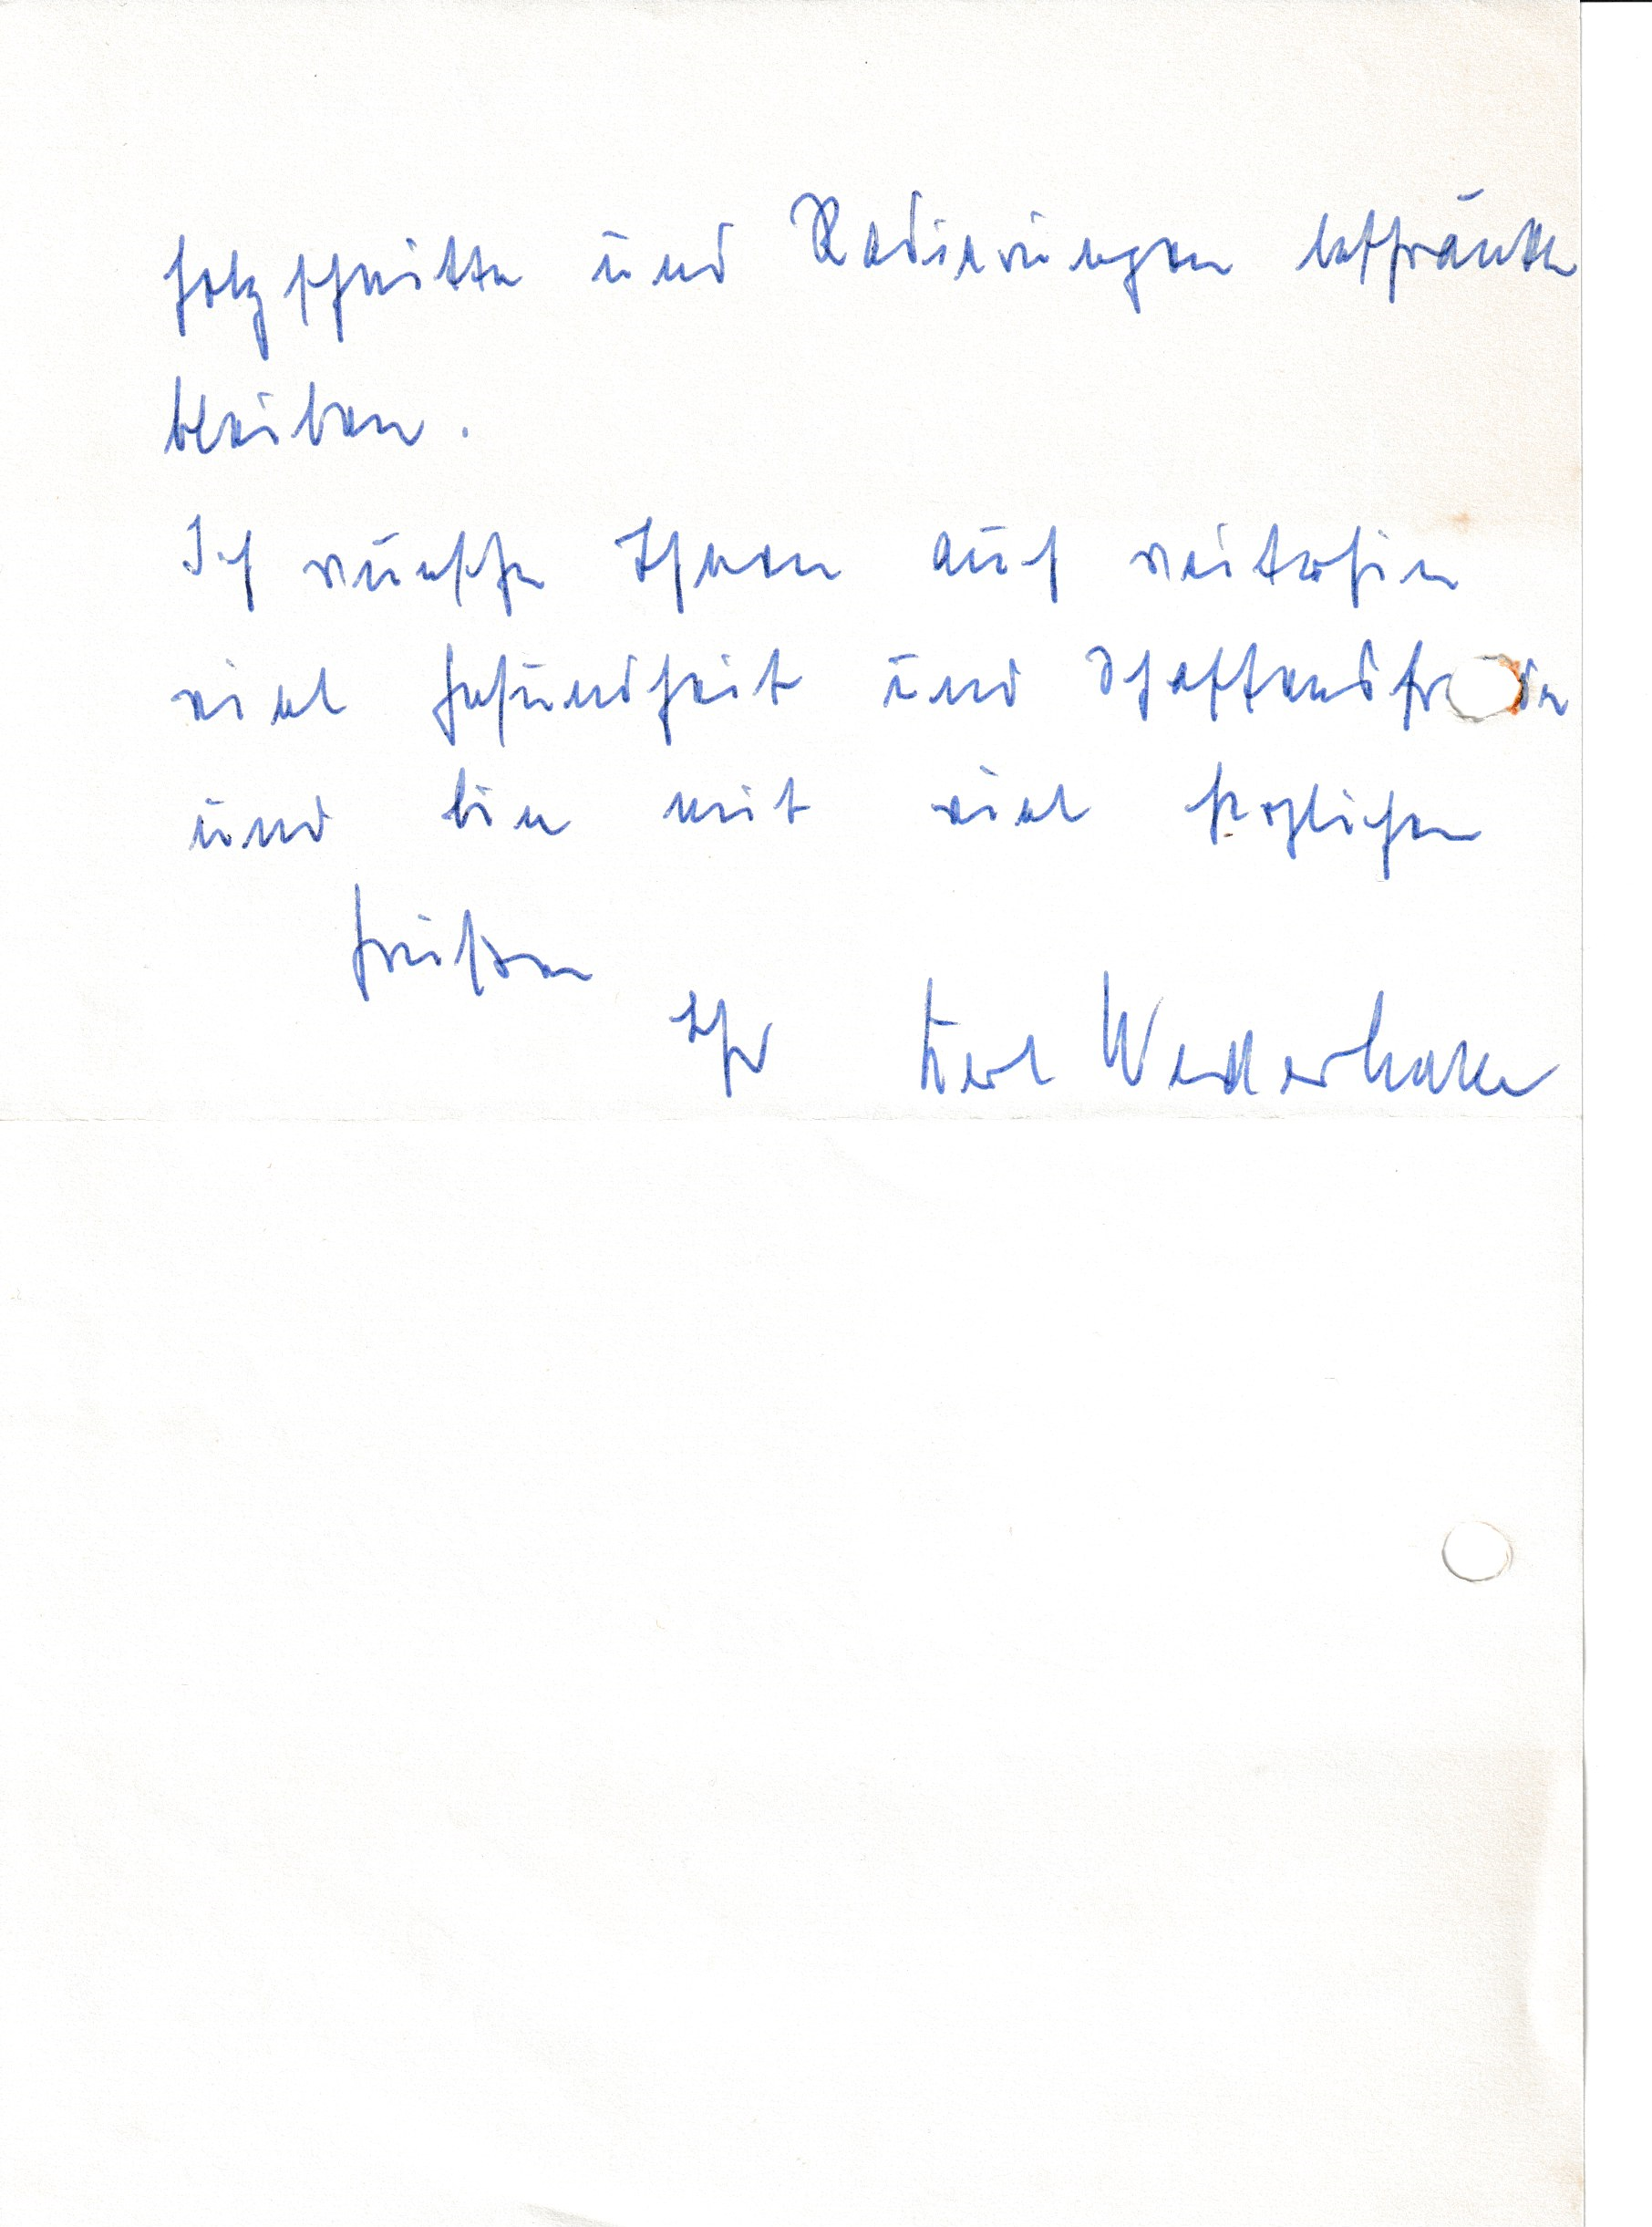 Holzschnitte und Radierungen beschränkt
bleiben.
Ich wünsche Ihnen auch weiterhin
viel Gesundheit und Schaffensfr de
und bin mit viel herzlichen
Grüßen
Ihr Karl